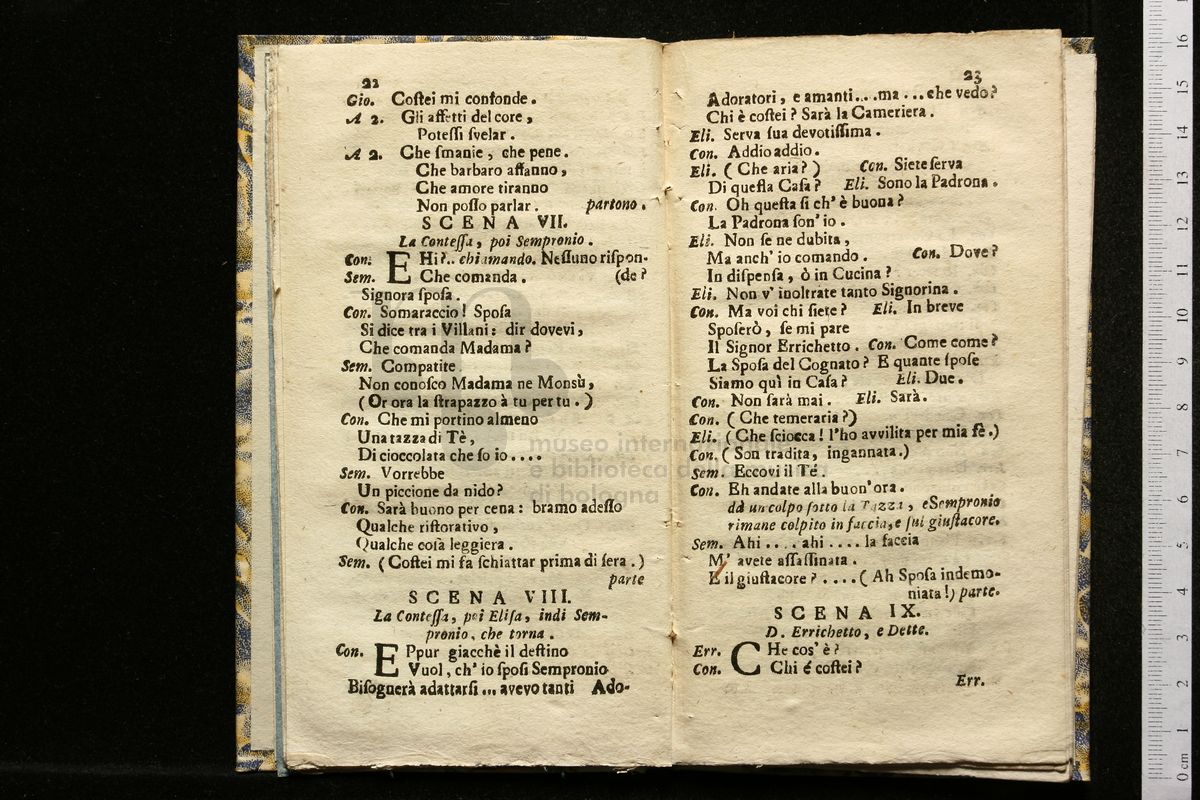 22
Gio. Coſtei mi confonde.
A 2. Gli affetti del core,
Poteſſi ſvelar.
A 2. Che ſmanie, che pene.
Che barbaro affanno,
Che amore tiranno
Non poſſo parlar. partono.
SCENA VII.
La Conteſſa, poi Sempronio.
Con. EHi?.. chiamando. Neſſuno riſpon-
Sem. Che comanda. (de?
Signora ſpoſa.
Con. Somaraccio! Spoſa
Si dice tra i Villani: dir dovevi,
Che comanda Madama?
Sem. Compatite.
Non conoſco Madama ne Monsù,
(Or ora la ſtrapazzo à tu per tu.)
Con. Che mi portino almeno
Una tazza di Tè,
Di cioccolata che ſo io....
Sem. Vorrebbe
Un piccione da nido?
Con. Sarà buono per cena: bramo adeſſo
Qualche riſtorativo,
Qualche coſa leggiera.
Sem. (Coſtei mi fa ſchiattar prima di ſera.)
parte
SCENA VIII.
La Conteſſa, poi Eliſa, indi Sem-
pronio, che torna.
Con. EPpur giacchè il deſtino
Vuol, ch' io ſpoſi Sempronio
Biſognerà adattarſi ... avevo tanti Ado-
23
Adoratori, e amanti....ma ... che vedo?
Chi è coſtei? Sarà la Cameriera.
Eli. Serva ſua devotiſſima.
Con. Addio addio.
Eli. (Che aria?) Con. Siete ſerva
Di queſta Caſa? Eli. Sono la Padrona.
Con. Oh queſta ſi ch' è buona?
La Padrona ſon' io.
Eli. Non ſe ne dubita,
Ma anch' io comando. Con. Dove?
In diſpenſa, ò in Cucina?
Eli. Non v' inoltrate tanto Signorina.
Con. Ma voi chi ſiete? Eli. In breve
Spoſerò, ſe mi pare
Il Signor Errichetto. Con. Come come?
La Spoſa del Cognato? E quante ſpoſe
Siamo quì in Caſa? Eli. Due.
Con. Non ſarà mai. Eli. Sarà.
Con. (Che temeraria?)
Eli. (Che ſciocca! l'ho avvilita per mia fè.)
Con. (Son tradita, ingannata.)
Sem. Eccovi il Té.
Con. Eh andate alla buon' ora.
dà un colpo ſotto la Tazza, e Sempronio
rimane colpito in faccia, e ſul giuſtacore.
Sem. Ahi.... ahi .... la faccia
M' avete aſſaſſinata.
E il giuſtacore? ....(Ah Spoſa indemo-
niata!) parte.
SCENA IX.
D. Errichetto, e Dette.
Err. CHe cos' è?
Con. Chi é coſtei?
Err.
museo internazionale
e biblioteca della musica
di bologna
0 cm 1 2 3 4 5 6 7 8 9 10 11 12 13 14 15 16